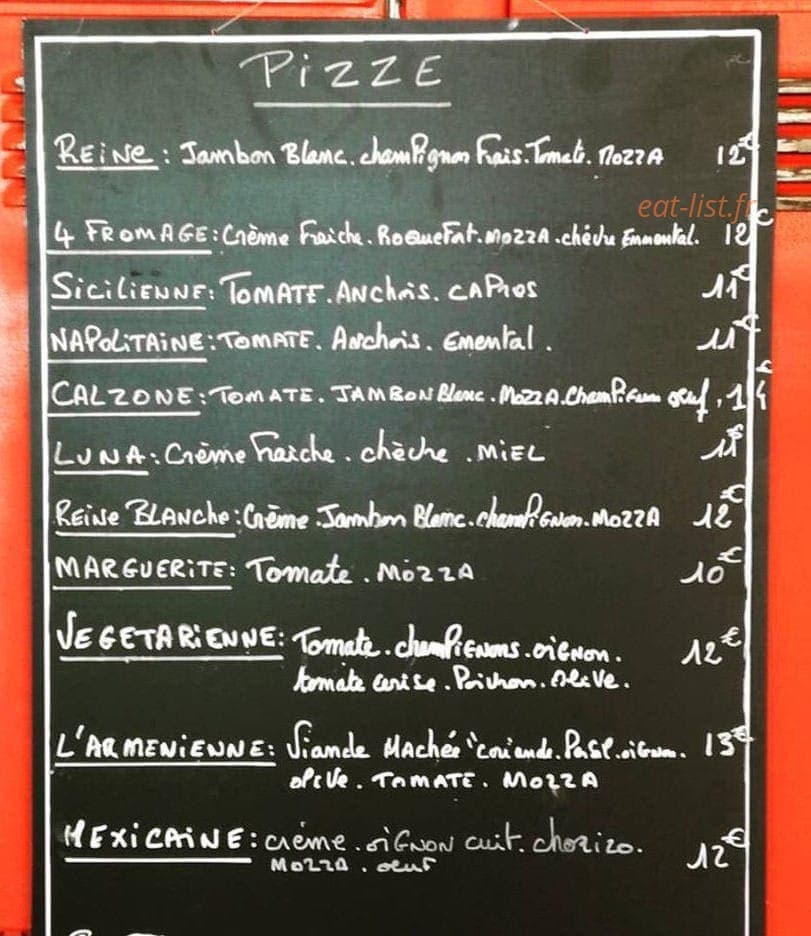 PIZZE
REINE : Jambon Blanc. champignon Frais. Tomate. MOZZA 12€
eat-list.fr
4 FROMAGE : Crème Fraiche. Roquefort. MOZZA. chèvre Emmental. 12€
SICILIENNE : TOMATE. ANCHOIS. CAPROS 11€
NAPOLITAINE : TOMATE. Anchois. Emental. 11€
CALZONE : TOMATE. JAMBON Blanc. MOZZA. Champignon oeuf. 14€
LUNA : Crème Fraiche. chèche. MIEL 11€
REINE BLANCHE : Crème. Jambon Blanc. champignon. MOZZA 12€
MARGUERITE : Tomate. MOZZA 10€
VEGETARIENNE : Tomate. champignons. oignon. 12€
tomate cerise. Poivron. olive.
L'ARMENIENNE : Viande Hachée "coriande. Persil. oignon. 13€
olive. TOMATE. MOZZA
MEXICAINE : crème. oignon cuit. chorizo. 12€
MOZZA. oeuf